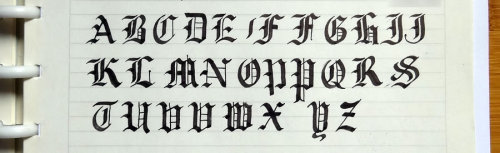 A B C D E F F G H I J
K L M N O P P Q R S
T U V V W X Y Z